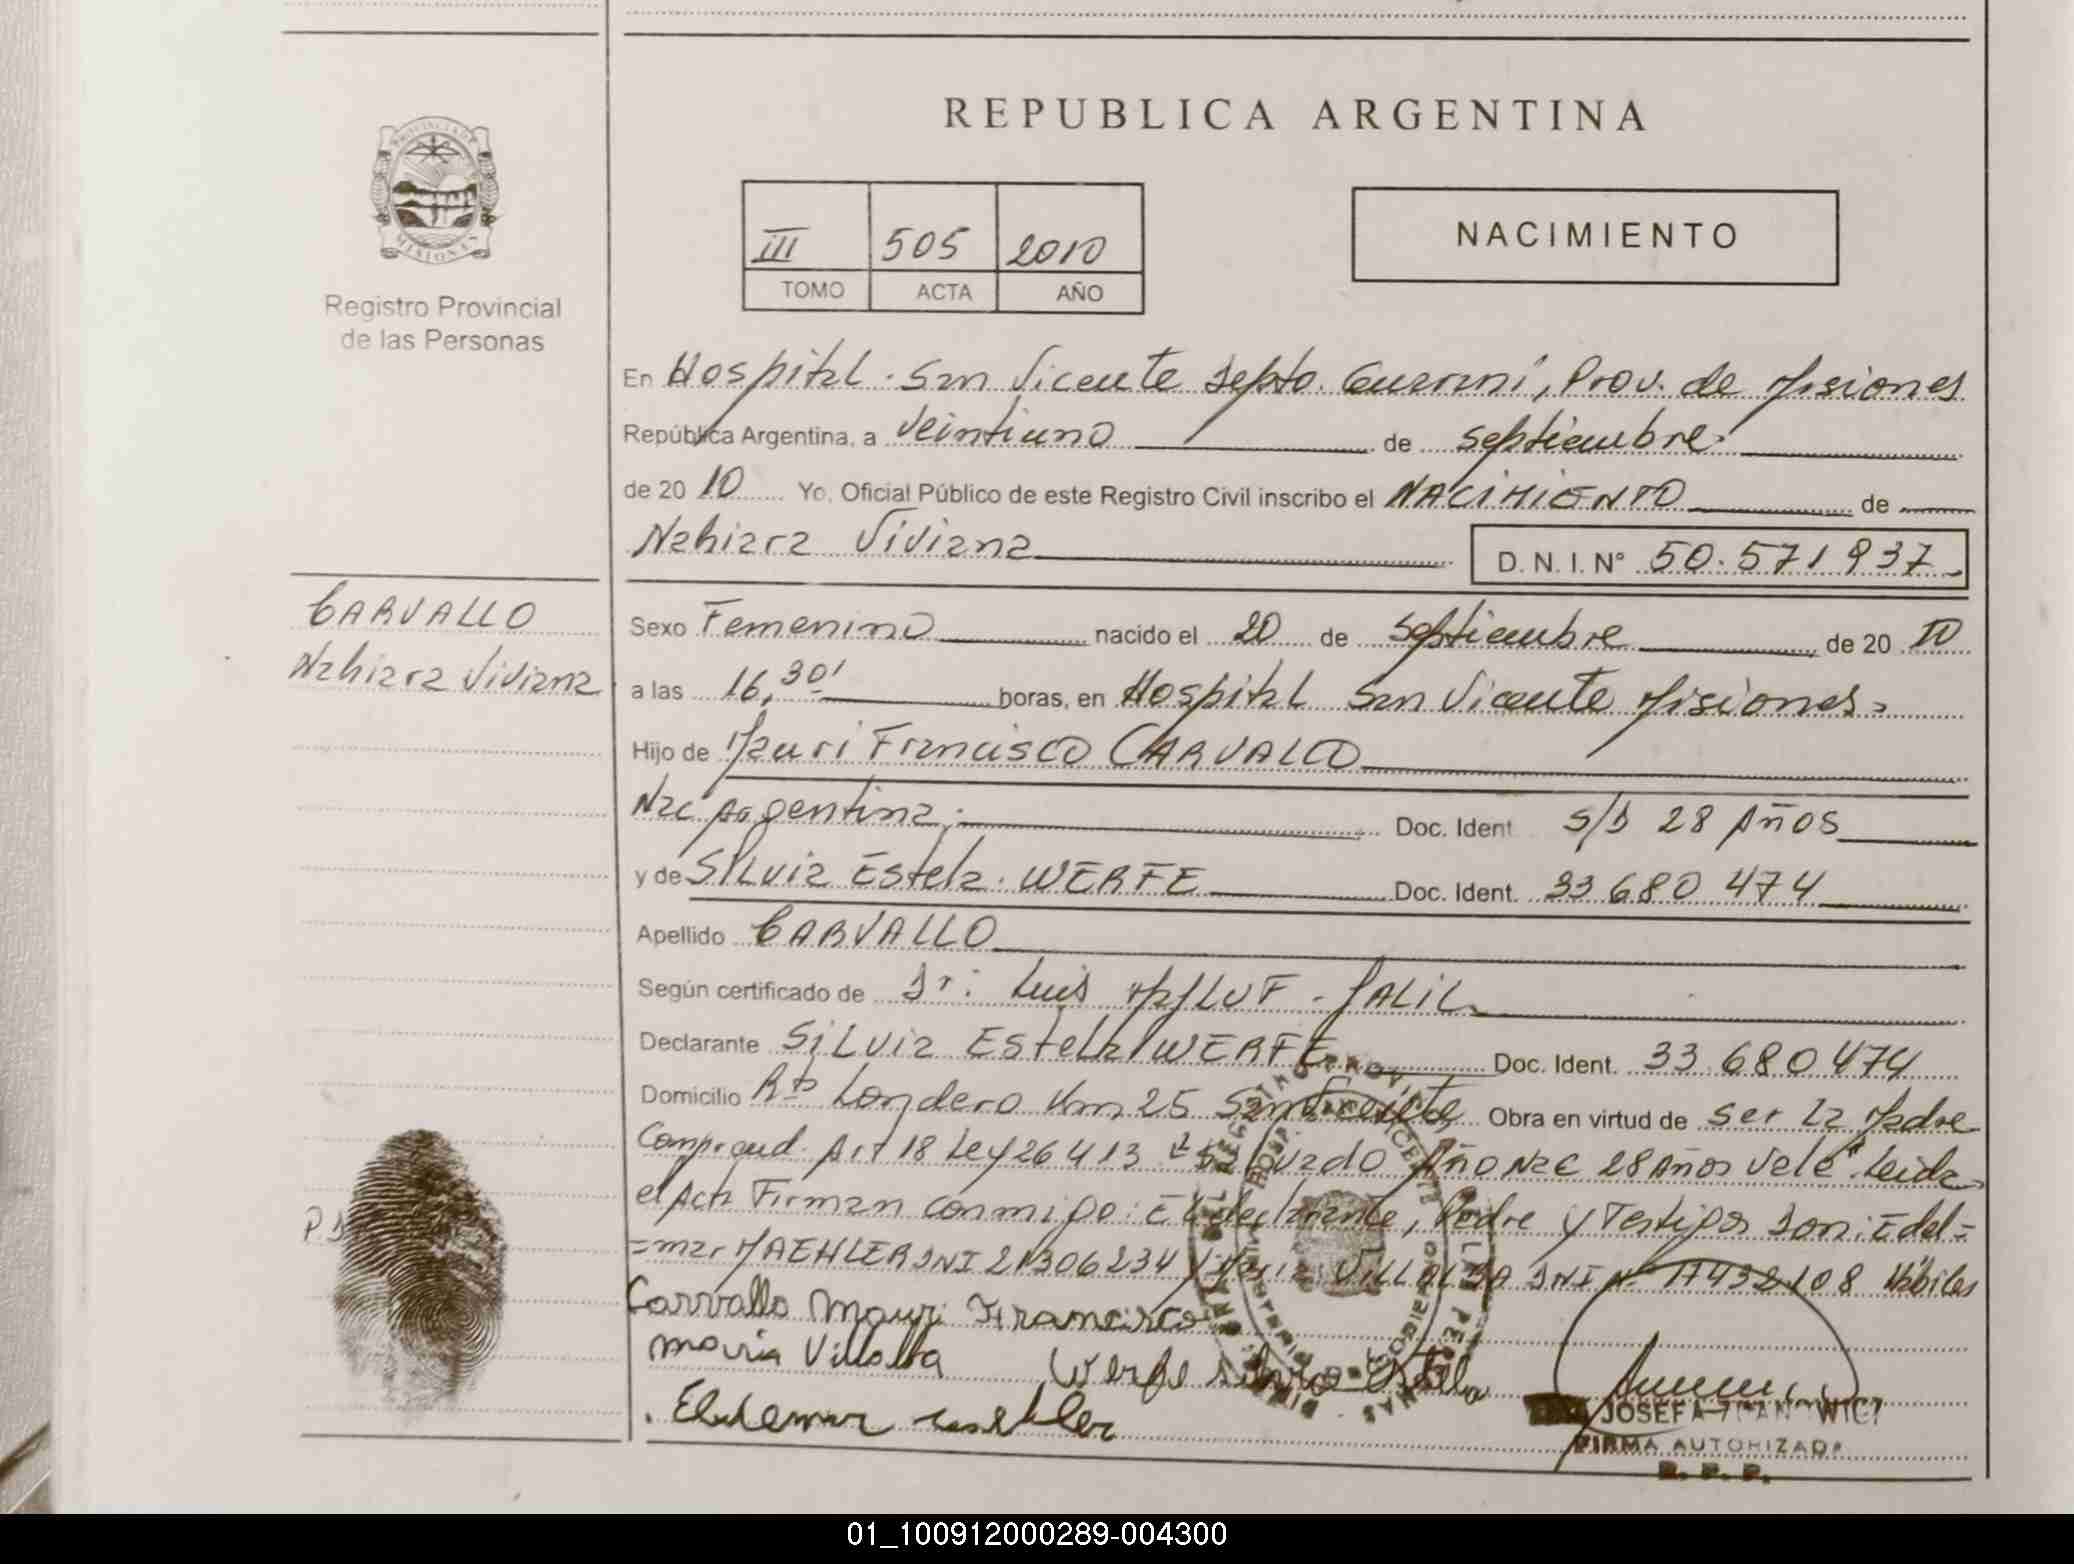 REPUBLICA ARGENTINA
PROVINCIA DE
MISIONES
Registro Provincial
de las Personas
III 505 2010
TOMO ACTA AÑO
NACIMIENTO
En Hospital. San Vicente Depto. Guarani, Prov. de Misiones
República Argentina, a Veintiuno de septiembre
de 20 10 Yo, Oficial Público de este Registro Civil inscribo el NACIMIENTO de
Nahiara Viviana D. N. I. N° 50.571937
CARVALLO
Nahiara Viviana
Sexo Femenino nacido el 20 de septiembre de 20 10
a las 16,30' horas, en Hospital San Vicente Misiones
Hijo de Mauri Francisco CARVALLO
Nac Argentina. Doc. Ident S/D 28 Años
y de Silvia Estela. WERFE Doc. Ident. 33 680 474
Apellido CARVALLO
Según certificado de Dr: Luis JALIL
Declarante Silvia Estela WERFE Doc. Ident. 33 680474
Domicilio Km 25 San Vicente Obra en virtud de ser La Madre
Art 18 Ley 26413 Año Nac 28 Años Vele" Leida
el Acta Firman conmigo: El declarante, Padre y Testigos Son: Edel=
=mar MAEHLER DNI 21306234 y Maria VILLALBA DNI Nº 17432108 Hábiles
Carvallo Mauri Francisco
Maria Villalba Werfe Silvia Estela
Eldemar
JOSEFA
FIRMA AUTORIZADA
R. P. P.
01_100912000289-004300